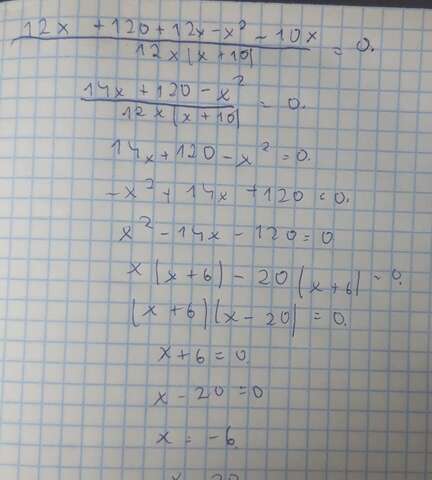 12x + 120 + 12x - x² - 10x
12x(x + 10) = 0.
14x + 120 - x²
12x(x + 10) = 0.
14x + 120 - x² = 0.
-x² + 14x + 120 = 0.
x² - 14x - 120 = 0
x(x + 6) - 20(x + 6) = 0.
(x + 6)(x - 20) = 0.
x + 6 = 0.
x - 20 = 0
x = -6.